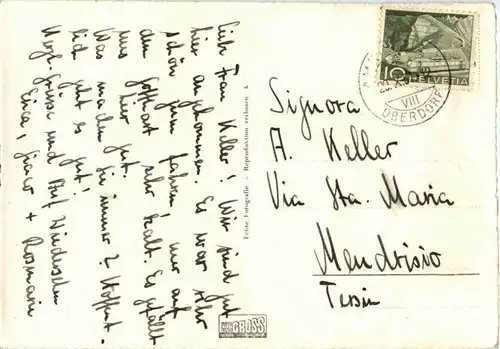 Lieb. Frau Keller! Wir sind gut
hier angekommen. Es war sehr
schön zum fahren, nur auf
dem Gotthart sehr kalt. Es gefällt
uns hier gut.
Was machen Sie immer? Hoffent-
lich geht es gut!
Herzl. Grüsse und Auf Wiedersehn
Erica, Giaco + Rosmarie
Echte Fotografie - Reproduktion verboten
GROSS
10 HELVETIA
VIII
OBERDORF
Signora
A. Keller
Via Sta. Maria
Mendrisio
Tessin